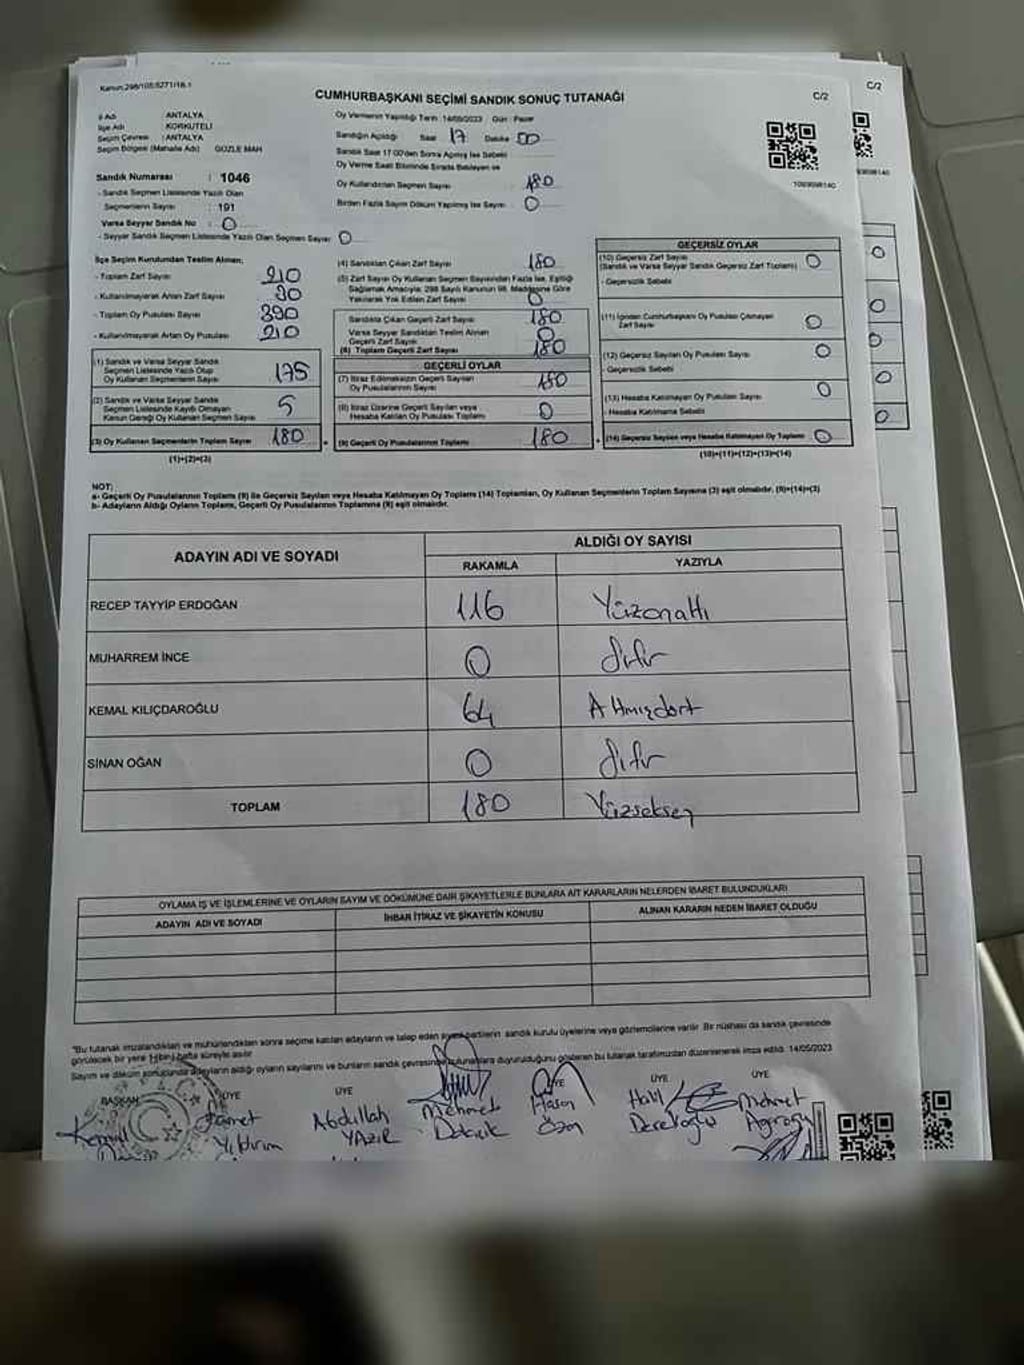 Kanun:298/105;6271/18.1
CUMHURBAŞKANI SEÇİMİ SANDIK SONUÇ TUTANAĞI
C/2
C/2
İl Adı : ANTALYA
İlçe Adı : KORKUTELİ
Seçim Çevresi : ANTALYA
Seçim Bölgesi (Mahalle Adı) GÜZLE MAH
Sandık Numarası : 1046
- Sandık Seçmen Listesinde Yazılı Olan
Seçmenlerin Sayısı : 191
Varsa Seyyar Sandık No : 0
- Seyyar Sandık Seçmen Listesinde Yazılı Olan Seçmen Sayısı 0
Oy Vermenin Yapıldığı Tarih : 14/05/2023 Gün : Pazar
Sandığın Açıldığı Saat 17 Dakika 00
Sandık Saat 17:00'den Sonra Açılmış İse Sebebi
Oy Verme Saati Bitiminde Sırada Bekleyen ve
Oy Kullandırılan Seçmen Sayısı 180
Birden Fazla Sayım Döküm Yapılmış İse Sayısı 0
1093098140
İlçe Seçim Kurulundan Teslim Alınan;
- Toplam Zarf Sayısı 210
- Kullanılmayarak Artan Zarf Sayısı 30
- Toplam Oy Pusulası Sayısı 390
- Kullanılmayarak Artan Oy Pusulası 210
(1) Sandık ve Varsa Seyyar Sandık
Seçmen Listesinde Yazılı Olup
Oy Kullanan Seçmenlerin Sayısı 175
(2) Sandık ve Varsa Seyyar Sandık
Seçmen Listesinde Kayıtlı Olmayan
Kanun Gereği Oy Kullanan Seçmen Sayısı 5
(3) Oy Kullanan Seçmenlerin Toplam Sayısı 180
(1)+(2)=(3)
(4) Sandıktan Çıkan Zarf Sayısı 180
(5) Zarf Sayısı Oy Kullanan Seçmen Sayısından Fazla İse, Eşitliği
Sağlamak Amacıyla; 298 Sayılı Kanunun 98. Maddesine Göre
Yakılarak Yok Edilen Zarf Sayısı 0
Sandıkta Çıkan Geçerli Zarf Sayısı 180
Varsa Seyyar Sandıktan Teslim Alınan
Geçerli Zarf Sayısı 0
(6) Toplam Geçerli Zarf Sayısı 180
GEÇERLİ OYLAR
(7) İtiraz Edilmeksizin Geçerli Sayılan
Oy Pusulalarının Sayısı 180
(8) İtiraz Üzerine Geçerli Sayılan veya
Hesaba Katılan Oy Pusulası Toplamı 0
(9) Geçerli Oy Pusulalarının Toplamı 180
GEÇERSİZ OYLAR
(10) Geçersiz Zarf Sayısı 0
(Sandık ve Varsa Seyyar Sandık Geçersiz Zarf Toplamı)
- Geçersizlik Sebebi
(11) İçinden Cumhurbaşkanı Oy Pusulası Çıkmayan
Zarf Sayısı 0
(12) Geçersiz Sayılan Oy Pusulası Sayısı 0
- Geçersizlik Sebebi
(13) Hesaba Katılmayan Oy Pusulası Sayısı 0
- Hesaba Katılmama Sebebi
(14) Geçersiz Sayılan veya Hesaba Katılmayan Oy Toplamı 0
(10)+(11)+(12)+(13)=(14)
NOT:
a- Geçerli Oy Pusulalarının Toplamı (9) ile Geçersiz Sayılan veya Hesaba Katılmayan Oy Toplamı (14) Toplamları, Oy Kullanan Seçmenlerin Toplam Sayısına (3) eşit olmalıdır. (9)+(14)=(3)
b- Adayların Aldığı Oyların Toplamı, Geçerli Oy Pusulalarının Toplamına (9) eşit olmalıdır.
ADAYIN ADI VE SOYADI
ALDIĞI OY SAYISI
RAKAMLA YAZIYLA
RECEP TAYYİP ERDOĞAN 116 Yüzonaltı
MUHARREM İNCE 0 Sıfır
KEMAL KILIÇDAROĞLU 64 Altmışdört
SİNAN OĞAN 0 Sıfır
TOPLAM 180 Yüzseksen
OYLAMA İŞ VE İŞLEMLERİNE VE OYLARIN SAYIM VE DÖKÜMÜNE DAİR ŞİKAYETLERLE BUNLARA AİT KARARLARIN NELERDEN İBARET BULUNDUKLARI
ADAYIN ADI VE SOYADI İHBAR İTİRAZ VE ŞİKAYETİN KONUSU ALINAN KARARIN NEDEN İBARET OLDUĞU
"Bu tutanak imzalandıktan ve mühürlendikten sonra seçime katılan adayların ve talep eden siyasi partilerin sandık kurulu üyelerine veya gözlemcilerine verilir. Bir nüshası da sandık çevresinde
görülecek bir yere 1(bir) hafta süreyle asılır.
Sayım ve döküm sonucunda adayların aldığı oyların sayılarını ve bunların sandık çevresinde bulunanlara duyurulduğunu gösteren bu tutanak tarafımızdan düzenlenerek imza edildi. 14/05/2023
BAŞKAN ÜYE ÜYE ÜYE ÜYE ÜYE
Kemal
Yıldırım
Abdullah
YAZIR
Mehmet
Hasan
Özen
Halil
Dereloğlu
Mehmet